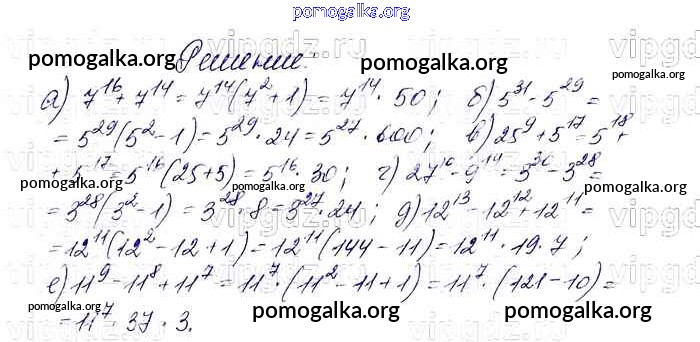 pomogalka.org
Решение:
а) 7^16 + 7^14 = 7^14(7^2+1) = 7^14 · 50; б) 5^31 - 5^29 =
= 5^29(5^2-1) = 5^29 · 24 = 5^27 · 600; в) 25^9 + 5^17 = 5^18 +
+ 5^17 = 5^16(25+5) = 5^16 · 30; г) 27^10 - 9^14 = 3^30 - 3^28 =
= 3^28(3^2-1) = 3^28 · 8 = 3^27 · 24; д) 12^13 - 12^12 + 12^11 =
= 12^11(12^2-12+1) = 12^11(144-11) = 12^11 · 19 · 7;
е) 11^9 - 11^8 + 11^7 = 11^7 · (11^2-11+1) = 11^7 · (121-10) =
= 11^7 · 37 · 3.
pomogalka.org
pomogalka.org
pomogalka.org
pomogalka.org
pomogalka.org
pomogalka.org
pomogalka.org
pomogalka.org
pomogalka.org
pomogalka.org